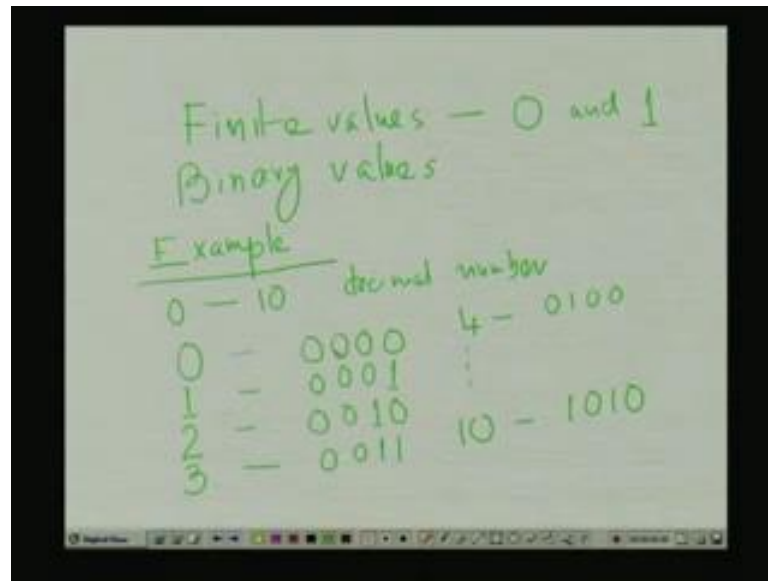 Finite values — 0 and 1
Binary values
Example
0 — 10 decimal number
0 — 0000
1 — 0001
2 — 0010
3 — 0011
4 — 0100
⋮
10 — 1010